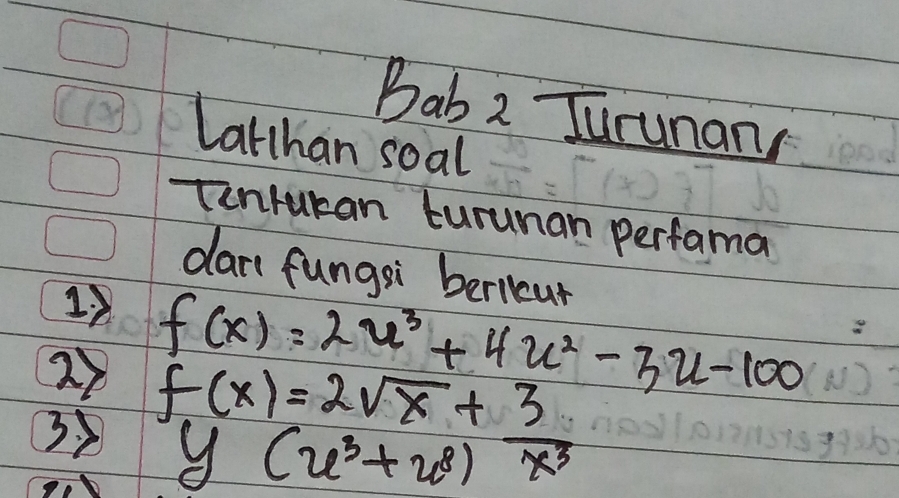 Bab 2 Turunan
Latihan soal
Tentukan turunan pertama
dari fungsi berikut :
1.> f(x) = 2x³ + 4x² - 3x - 100
2> f(x) = 2√x + 3/x³
3.> y (x³ + x⁸)